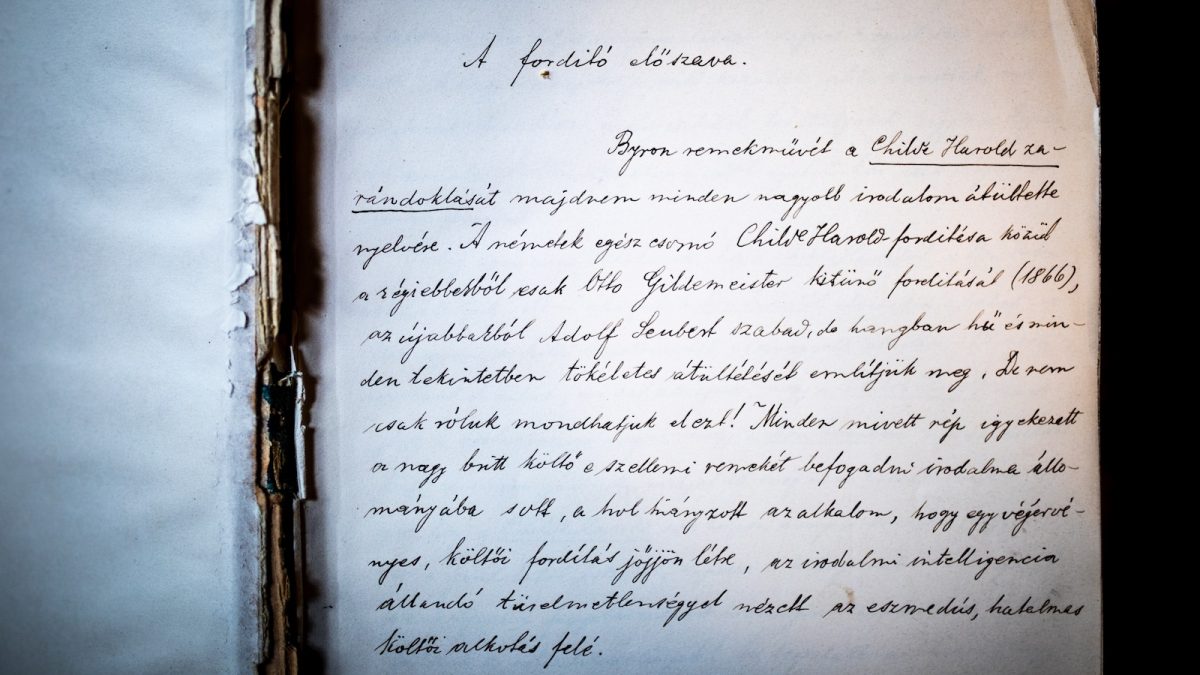 A fordító előszava.
Byron remekművét a Childe Harold za-
rándoklását majdnem minden nagyobb irodalom átültette
nyelvére. A németek egész csomó Childe Harold-fordítása közül
a régiebbekből csak Otto Gildemeister kitünő fordítását (1866),
az újabbakból Adolf Seubert szabad, de hangban hű és min-
den tekintetben tökéletes átültetését említjük meg. De nem
csak róluk mondhatjuk el ezt! Minden mívelt nép igyekezett
a nagy britt költő e szellemi remekét befogadni irodalma állo-
mányába s ott, a hol hiányzott az alkalom, hogy egy végérvé-
nyes, költői fordítás jőjjön létre, az irodalmi intelligencia
állandó türelmetlenséggel nézett az eszmedús, hatalmas
költői alkotás felé.